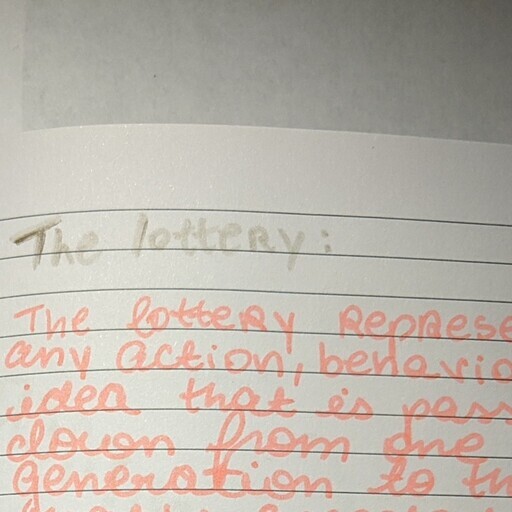 The lottery:
The lottery represe
any action, behavio
idea that is pass
down from one
generation to th